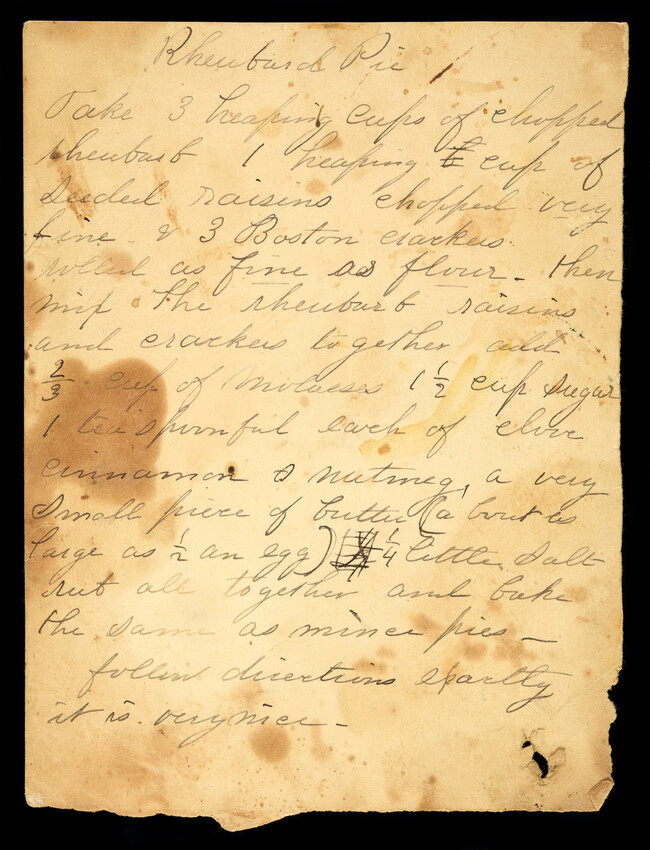 Rheubard Pie
Take 3 heaping cups of chopped
rheubarb 1 heaping cup of
seeded raisins chopped very
fine & 3 Boston crackers
rolled as fine as flour - then
mix the rheubarb raisins
and crackers together add
2/3 cup of molasses 1 1/2 cup sugar
1 teaspoonful each of clove
cinnamon & nutmeg, a very
small piece of butter (about as
large as 1/2 an egg) 1/4 little salt
rub all together and bake
the same as mince pies -
follow directions exactly
it is very nice -